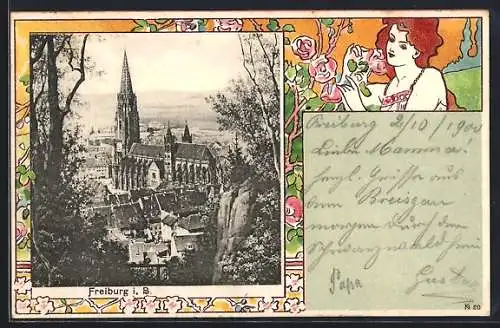 Freiburg 2/10/1900
Liebe Mamma!
Herzl. Grüsse aus
dem Breisgau
morgen durch den
Schwarzwald
Papa Gustav
Freiburg i. B.
№ 20